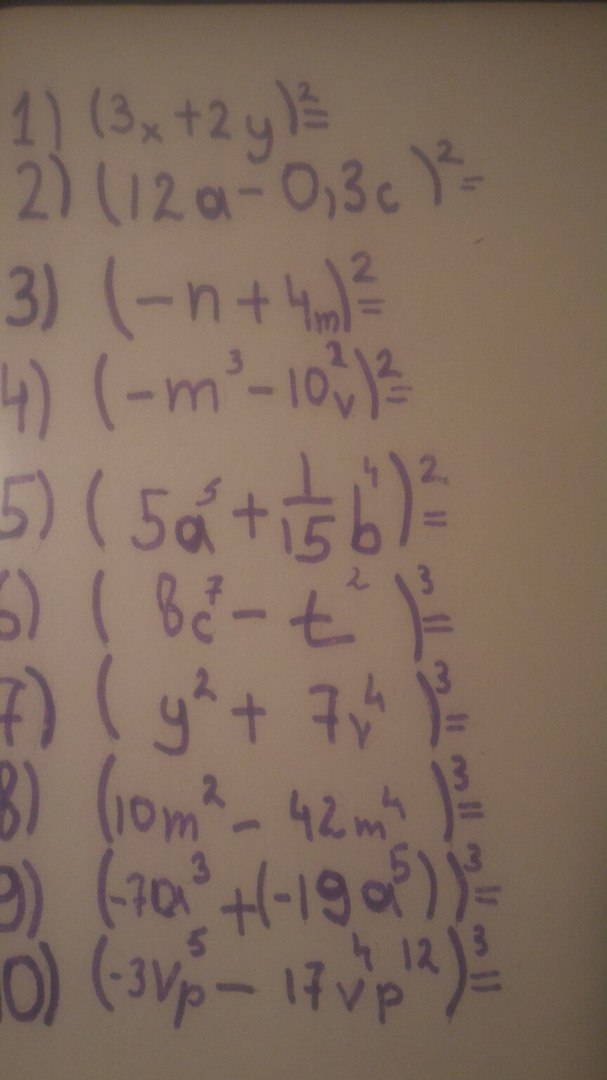 1) (3x + 2y)² =
2) (12a - 0,3c)² =
3) (-n + 4m)² =
4) (-m³ - 10v²)² =
5) (5a⁵ + 1/15 b⁴)² =
6) (8c⁷ - t²)³ =
7) (y² + 7v⁴)³ =
8) (10m² - 42m⁴)³ =
9) (-7a³ + (-19a⁵))³ =
10) (-3vp⁵ - 17v⁴p¹²)³ =